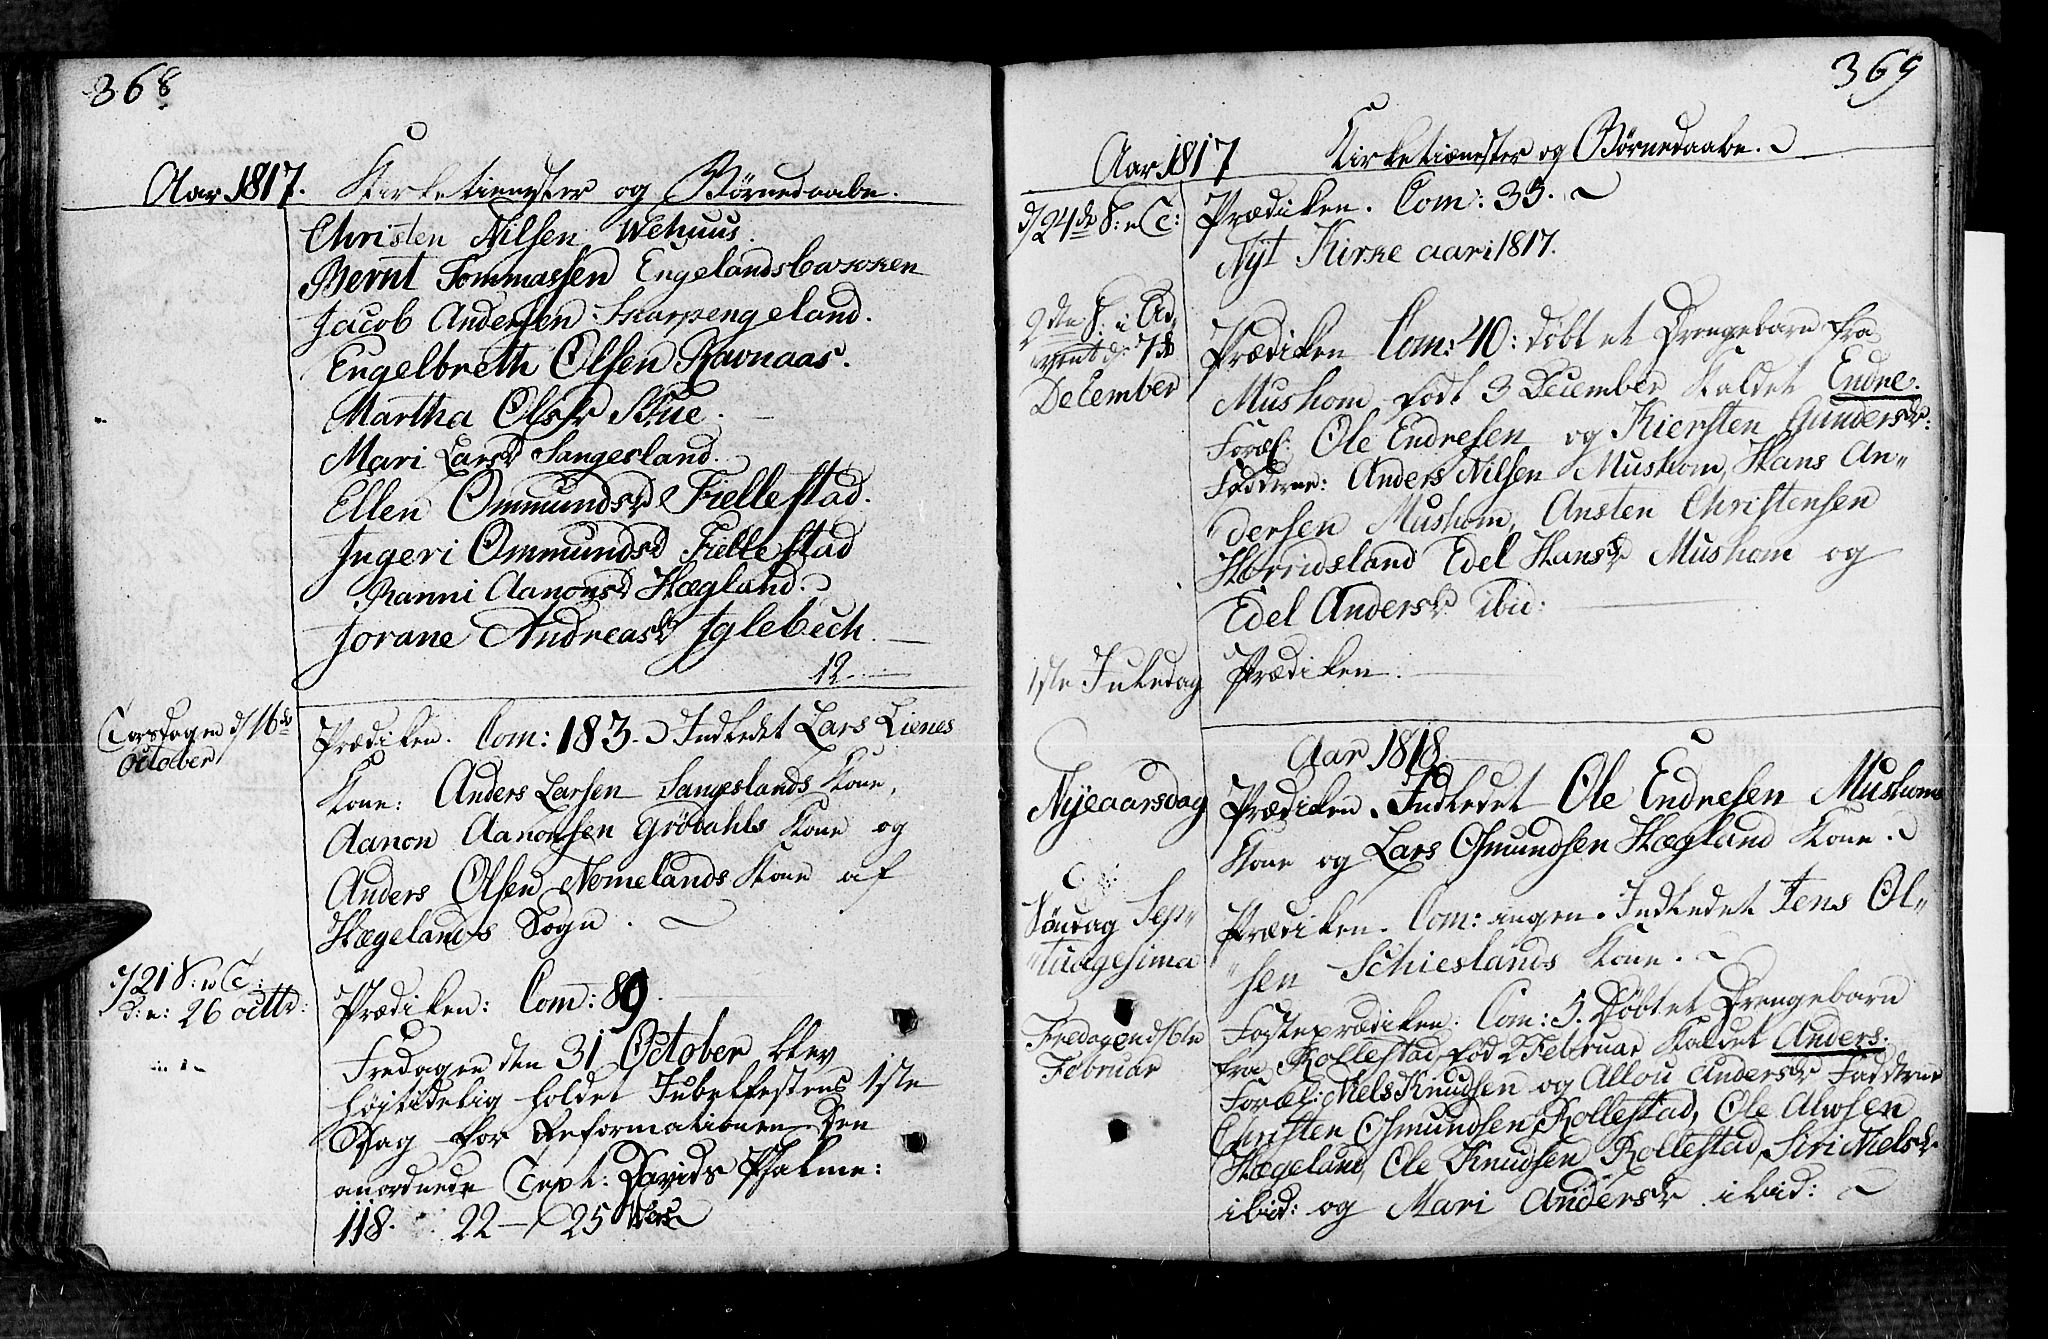 368
Aar 1817. Kirketienester og Börnedaabe.
Christen Nilsen Wehuus.
Bernt Tommassen Engelandsbakken
Jacob Andersen Skarpengeland.
Engelbreth Olsen Ravnaas.
Martha Olsdr Skue.
Mari Larsd Sangesland.
Ellen Ommundsdr Fiellestad.
Ingeri Ommundsd Fiellestad
Ranni Aanonsd Hægland.
Jorane Andreasdr Iglebech.
12.
Torsdagen d 16de
October
Prædiken. Com: 183. Indledet Lars Lienes
Kone: Anders Larsen Sangeslands Kone,
Aanon Aanonsen Gröbahls Kone og
Anders Olsen Nomelands Kone af
Hægelands Sogn.
d 21 S: n T:
d: e: 26 octbr:
Prædiken: Com: 89
Fredagen den 31 October blev
höjtidelig holdet Jubelfestens 1ste
Dag for Reformationen. Den
anordnede Text: Davids Psalme:
118. 22 - 25 Vers
369
Aar 1817 Kirketienester og Börnedaabe.
d 24de S: n T:
Prædiken. Com: 33.
Nÿt Kirke aar i 1817.
2den S: i Ad
vent d: 7de
December
Prædiken Com: 40: döbt et Drengebarn fra
Mushom födt 3 December kaldet Endre.
Foræl: Ole Endresen og Kiersten Gundersdr:
Fadderne: Anders Nilsen Mushom, Hans An„
„dersen Mushom, Ansten Christensen
Horridsland Edel Hansdr Mushom og
Edel Andersdr ibid:
1ste Juledag
Prædiken.
Aar 1818.
Nÿeaarsdag
Prædiken. Indledet Ole Endresen Mushoms
Kone og Lars Osmundsen Hægland Kone.
Söndag Sep„
„tuagesima
Prædiken. Com: ingen. Indledet Jens Ol„
„sen Schieslands Kone.
Fredagen d 6te
Februar
Fasteprædiken. Com: 5. Döbt et Drengebarn
fra Rollestad, föd 2 Februar kaldet Anders.
Foræl: Niels Knudsen og Allou Andersdr Fadderne
Christen Osmundsen Rollestad, Ole Alwsen
Hægeland, Ole Knudsen Rollestad, Siri Nielsdr
ibid: og Mari Andersdr ibid: